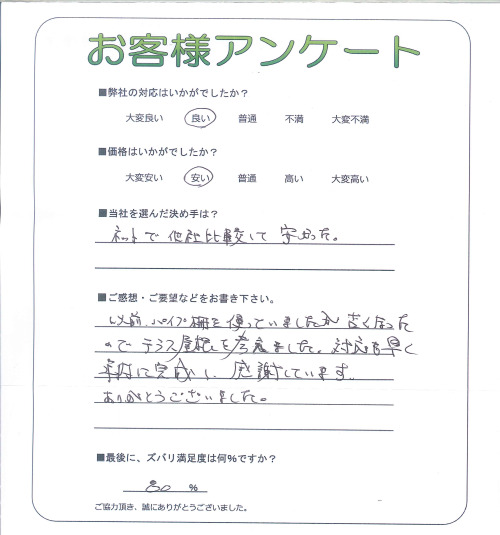 お客様アンケート
■弊社の対応はいかがでしたか？
大変良い 良い 普通 不満 大変不満
■価格はいかがでしたか？
大変安い 安い 普通 高い 大変高い
■当社を選んだ決め手は？
ネットで他社比較して安かった。
■ご感想・ご要望などをお書き下さい。
以前パイプ棚を使っていましたが古くなった
のでテラス屋根を考えました。対応も早く
に完成し、感謝しています。
ありがとうございました。
■最後に、ズバリ満足度は何%ですか？
80 %
ご協力頂き、誠にありがとうございました。